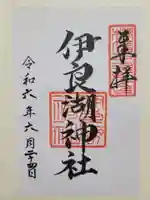 奉拝
伊良湖神社
令和六年六月三十日